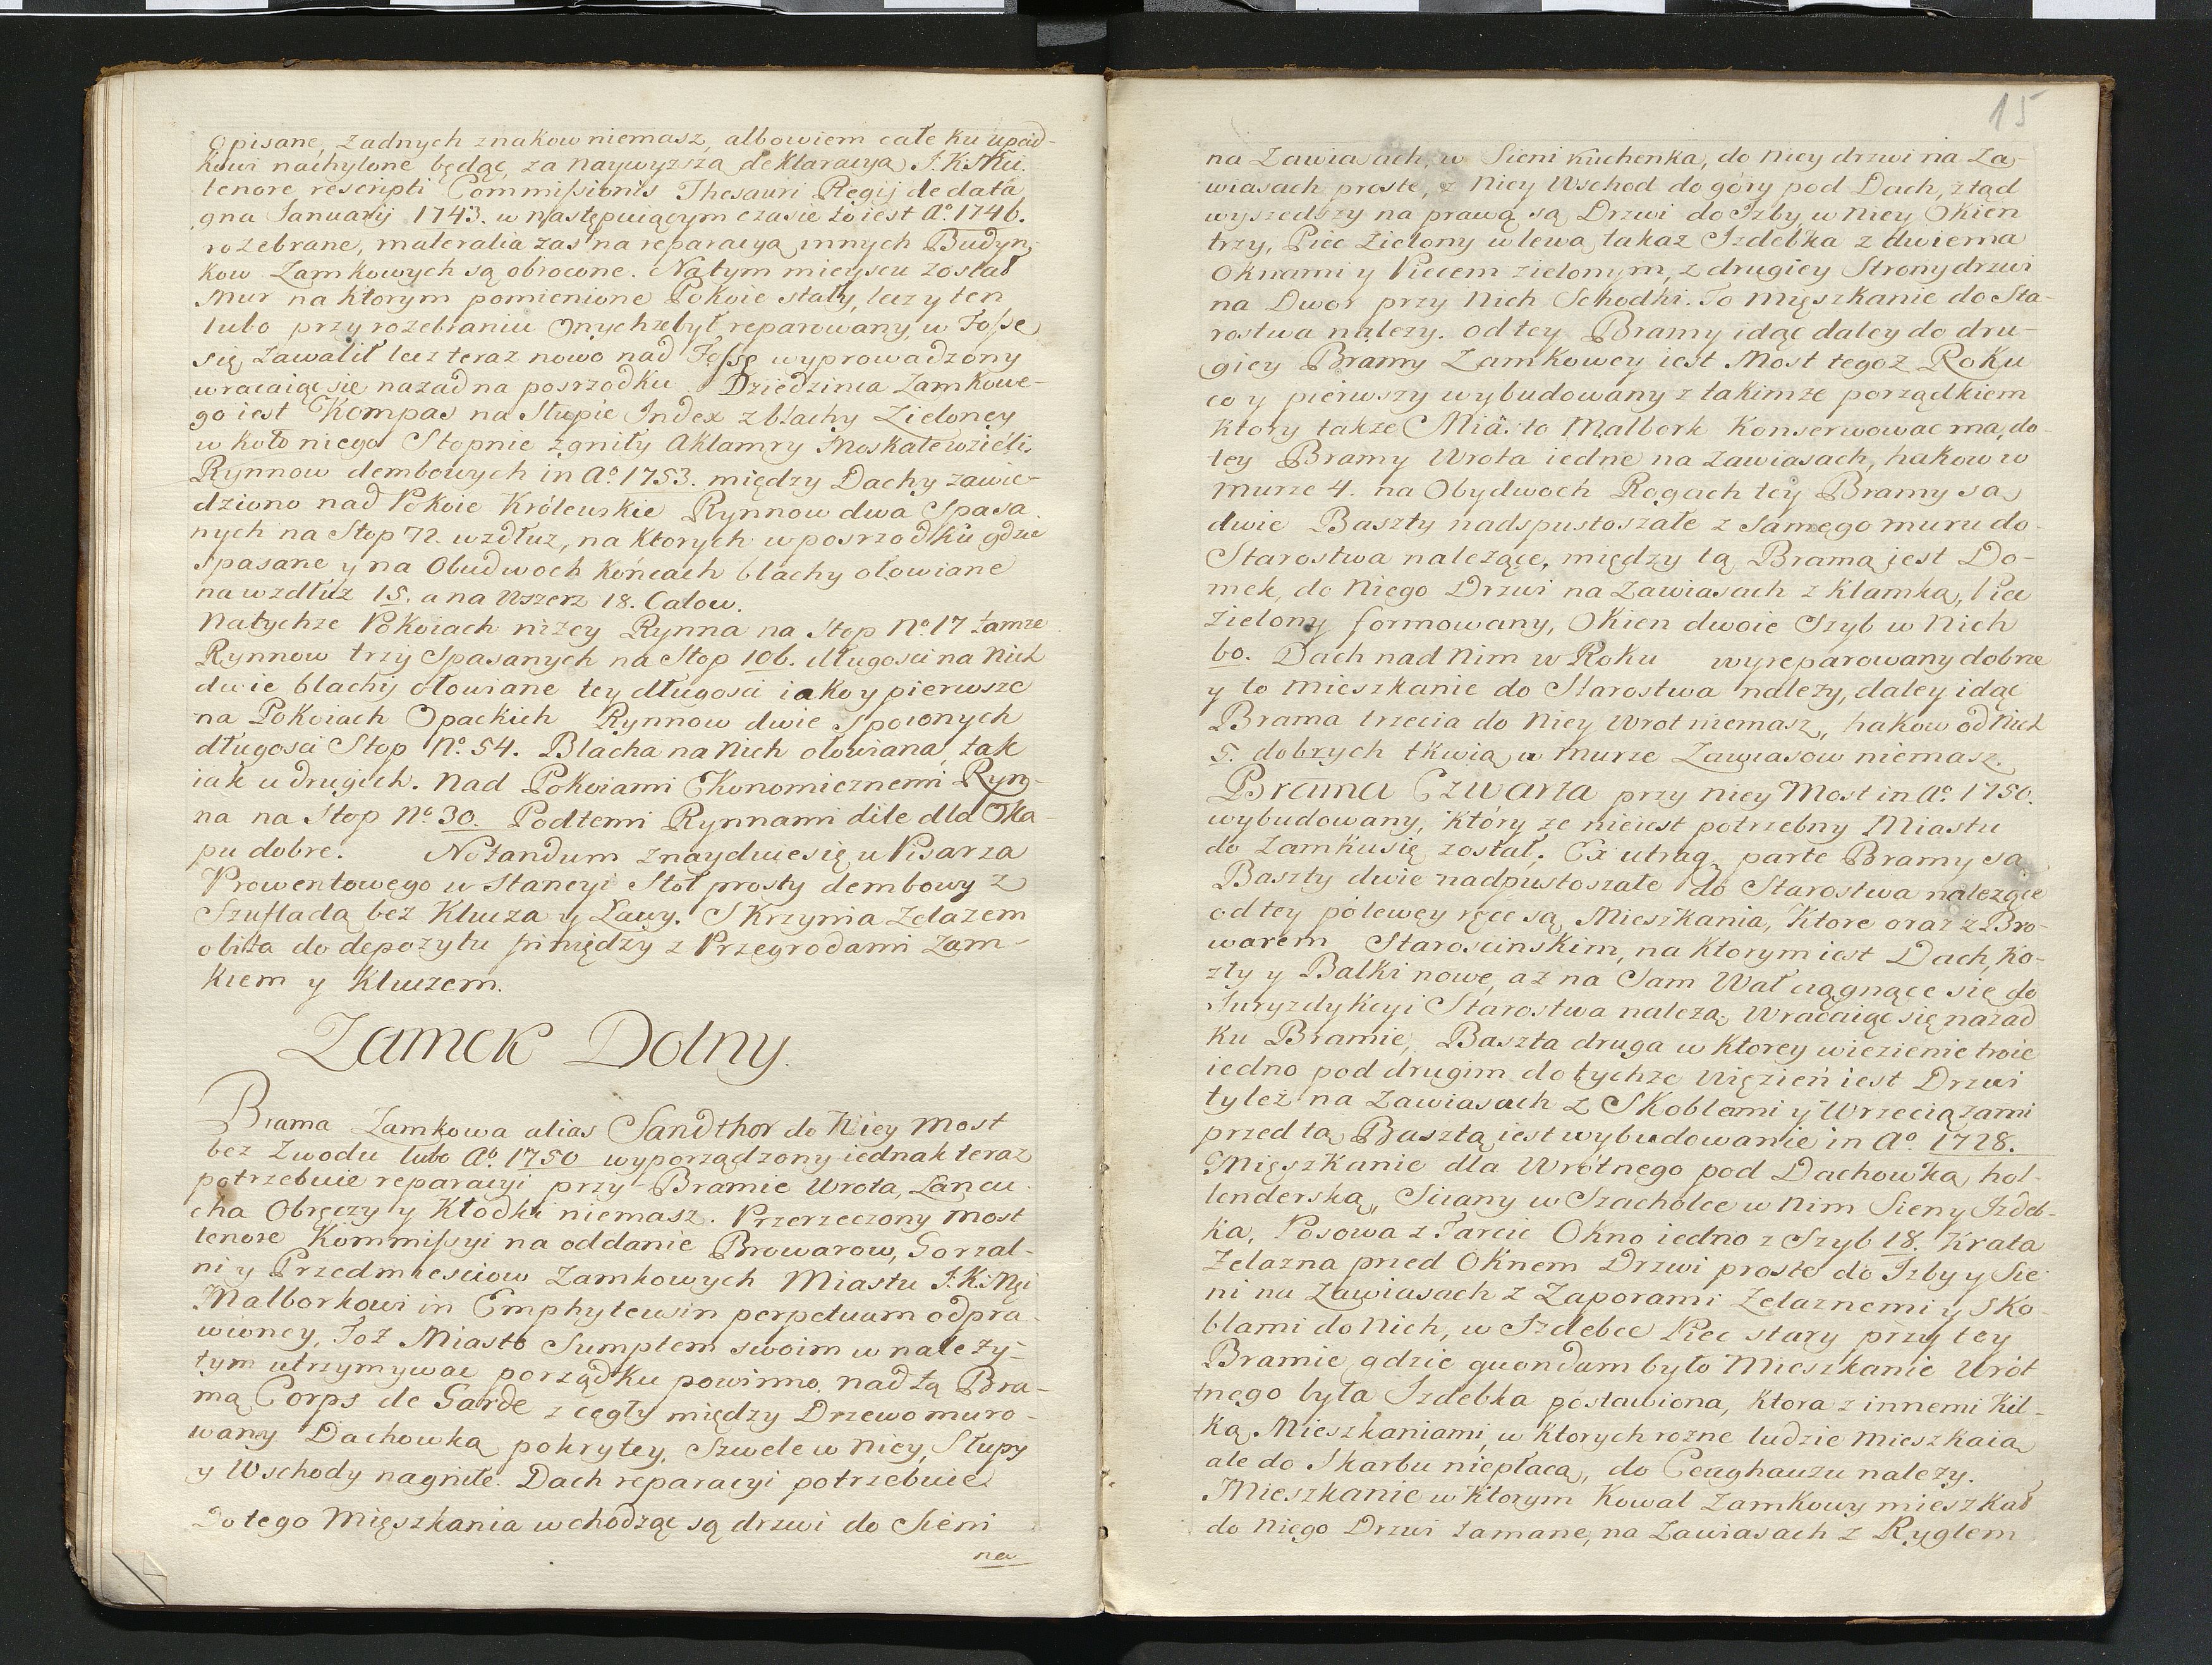 opisane, żadnych znakow niemasz, albowiem całe ku upad-
kowi nachylone będąc, za naywyzszą deklaracyą J. K. Mśći.
tenore rescripti Commissionis Thesauri Regij de data
9na Januarij 1743. w następuiącym czasie to iest Aº. 1746.
rozebrane, materalia zaś na reparacyą innych Budyn-
kow Zamkowych są obrocone. Natym mieyscu został
Mur na ktorym pomienione Pokoie stały, lecz y ten
lubo przy rozebraniu Onychże był reparowany, w Fosse
się zawalił lecz teraz nowo nad Fossę wyprowadzony
wracaiąc się nazad na posrzodku Dziedzinca Zamkowe-
go iest Kompas na Słupie Index z blachy Zieloney
w koło niego Stopnie zgniły a klamry Moskale wzieli.
Rynnow dembowych in Aº. 1753. między Dachy zawie-
dziono nad Pokoie Królewskie Rynnow dwa Spasa
nych na Stop 72. wzdłuz, na ktorych w posrzodku gdzie
spasane y na Obudwoch końcach blachy ołowiane
na wzdłuz 15. a na Wszerz 18. Calow.
Natychże Pokoiach niżey Rynna na Stop Nº. 17 tamże
Rynnow trzy Spasanych na Stop 106. długosci na Nich
dwie blachy ołowiane tey długosci iako y pierwsze
na Pokoiach Opackich Rynnow dwie Spoionych
długosci Stop Nº. 54. Blacha na Nich ołowiana, tak
iak u drugich. Nad Pokoiami Ekonomicznemi Ryn-
na na Stop Nº. 30. Podtemi Rynnami dile dla Oka-
pu dobre. Notandum znayduie się u Pisarza
Prowentowego w Stancyi Stoł prosty dembowy z
Szufladą bez Klucza y Ławy. Skrzynia żelazem
obita do depozytu piniędzy z Przegrodami Zam-
kiem y Kluczem.
Zamek Dolny.
Brama Zamkowa alias Sandthor do Niey Most
bez Zwodu lubo Aº. 1750 wyporządzony iednak teraz
potrzebuie reparacyi przy Bramie Wrota, Łancu-
cha Obręczy y Kłodki niemasz. Przerzeczony Most
tenore Kommissyi na oddanie Browarow, Gorzal-
ni y Przedmiesciow Zamkowych Miastu J. K. Mći
Malborkowi in Emphyteusin perpetuam odpra-
wioney, Toż Miasto Sumptem swoim w należy-
tym utrzymywac porządku powinno. nad tą Bra-
mą Corps de Garde z cegły między Drzewo muro-
wany Dachowką pokrytey, Szwele w Niey, Słupy
y Wschody nagniłe. Dach reparacyi potrzebuie
Do tego Mięszkania wchodząc są drzwi do Sieni
na
15
na Zawiasach, w Sieni kuchenka, do Niey drzwi na Za-
wiasach proste, z Niey Wschod do góry pod Dach, ztąd
wyszedszy na prawą są Drzwi do Izby, w Niey Okien
trzy, Piec zielony w lewą takaz Izdebka z dwiema
Oknami y Piecem zielonym, z drugiey Strony drzwi
na Dwor przy Nich Schodki. To Mięszkanie do Sta-
rostwa należy. od tey Bramy idąc daley do dru-
giey Bramy Zamkowey iest Most tegoz Roku
co y pierwszy wybudowany z takimże porządkiem
ktory także Miasto Malbork Konserwowac ma, do
tey Bramy Wrota iedne na Zawiasach, hakow w
Murze 4. na Obydwoch Rogach tey Bramy są
dwie Baszty nadspustoszałe z Samego muru do
Starostwa należące, między tą Bramą jest Do-
mek, do Niego Drzwi na Zawiasach z Klamką, Piec
zielony formowany, Okien dwoie Szyb w Nich
60. Dach nad Nim w Roku wyreparowany dobrze
y to Mieszkanie do Starostwa należy, daley idąc
Brama trzecia do Niey Wrot niemasz, hakow od Nich
5. dobrych tkwią w Murze Zawiasow niemasz.
Brama Czwarta przy Niey Most in Aº. 1750.
wybudowany, ktory że nieiest potrzebny Miastu
do Zamku się został. Ex utraq. parte Bramy są
Baszty dwie nadpustoszałe do Starostwa należące
od tey po lewey ręce są Mieszkania, ktore oraz z Bro-
warem Staroscinskim, na ktorym iest Dach, Ko-
zły y Balki nowe, aż na Sam Wał ciągnące się do
Juryzdykcyi Starostwa należą. Wracaiąc się nazad
ku Bramie, Baszta druga w ktorey wiezienie troie
iedno pod drugim do tychże więzień iest Drzwi
tyleż na Zawiasach z Skoblami y Wrzeciązami
przed tą Basztą iest wybudowanie in Aº. 1728.
Mięszkanie dla Wrótnego pod Dachowką hol-
lenderską, Sciany w Szacholce w Nim Sieny Izdeb-
ka, Posowa z Tarcic Okno iedno z Szyb 18. Krata
Żelazna przed Oknem Drzwi proste do Izby y Sie-
ni na Zawiasach z Zaporami Żelaznemi y Sko-
blami do Nich, w Izdebce Piec stary przy tey
Bramie, gdzie quondam było Mieszkanie Wrót
tnego była Izdebka postawiona, ktora z innemi Kil-
ką Mieszkaniami, w ktorych rozne ludzie Mieszkaią
ale do Skarbu niepłacą, do Ceughauzu należy.
Mieszkanie w ktorym Kowal Zamkowy mieszkał
do Niego Drzwi łamane, na Zawiasach z Ryglem